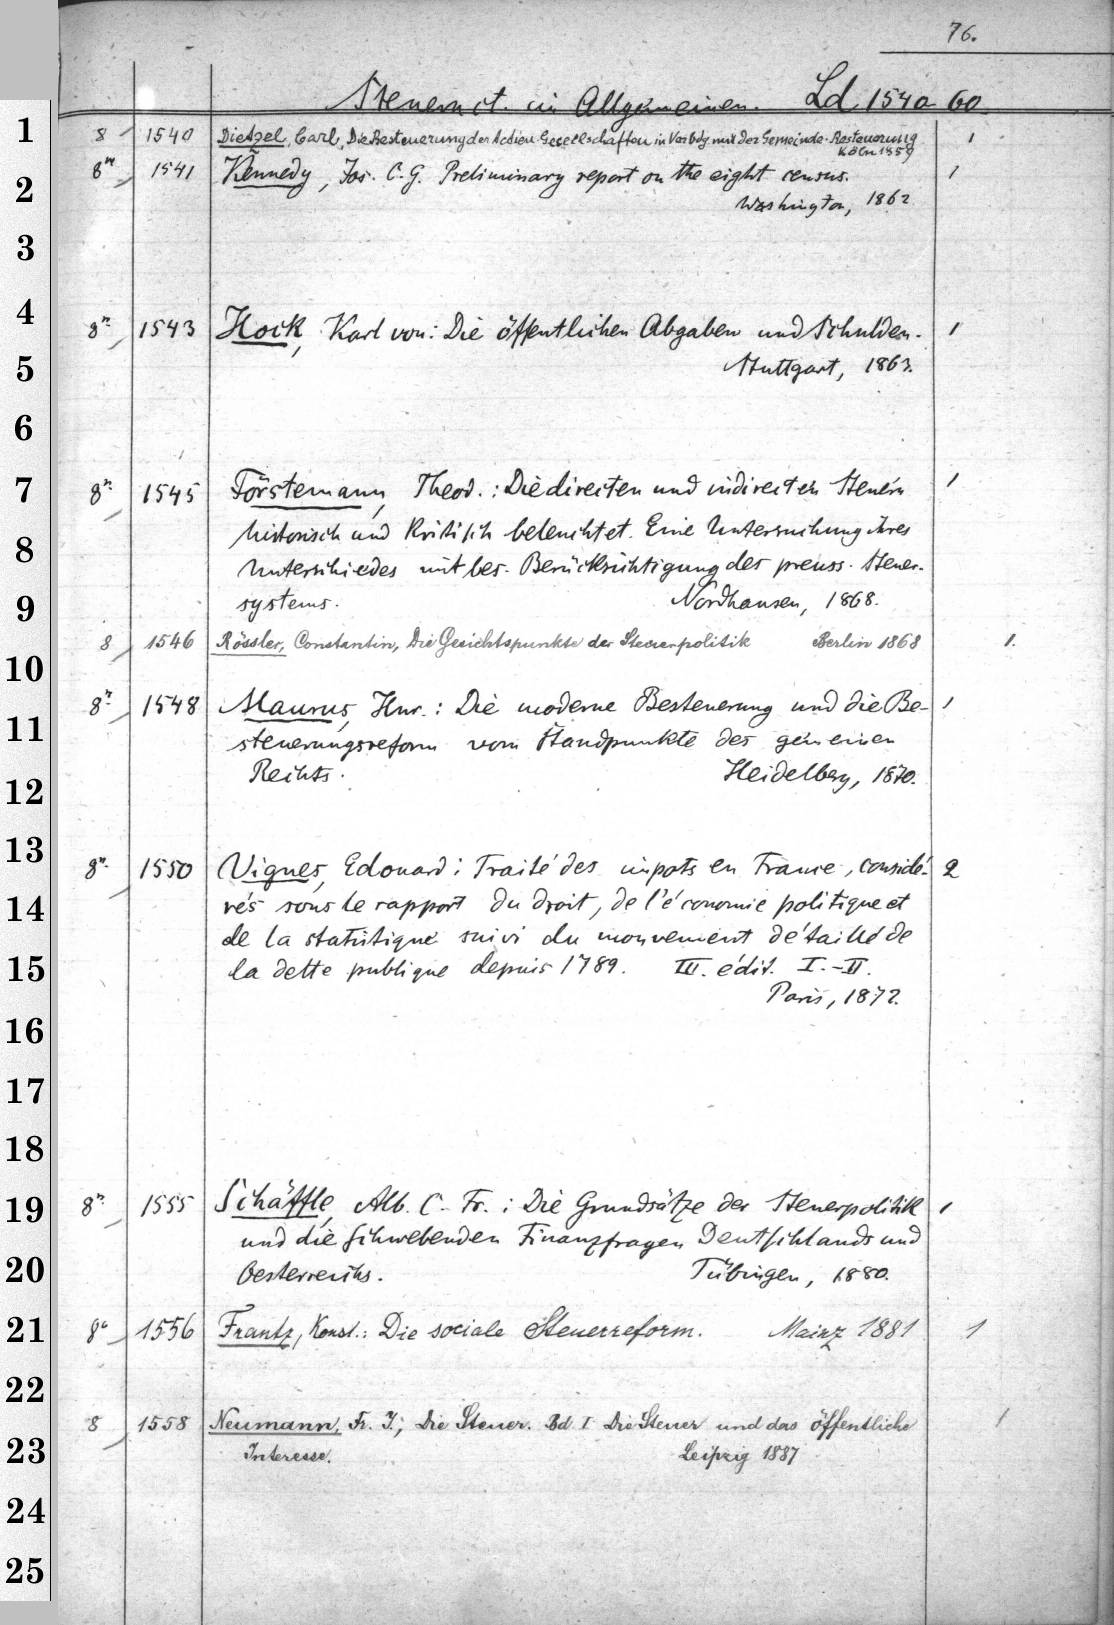 76.
Steuern ct. im Allgemeinen. Ld 1540 60
1 8 1540 Dietzel, Carl, Die Besteuerung der Actien Gesellschaften in Verbdg mit der Gemeinde-Besteuerung 1
Köln 1859
2 8° 1541 Kennedy, Jos. C. G. Preliminary report on the eight census. 1
Washington, 1862
3
4 8° 1543 Hock, Karl von: Die öffentlichen Abgaben und Schulden. 1
5 Stuttgart, 1863.
6
7 8° 1545 Förstemann, Theod.: Die directen und indirecten Steuern 1
8 historisch und kritisch beleuchtet. Eine Untersuchung ihres
Unterschiedes mit bes. Berücksichtigung des preuss. Steuer-
9 systems. Nordhausen, 1868.
10 8 1546 Rössler, Constantin, Die Gesichtspunkte der Steuerpolitik Berlin 1868 1.
8° 1548 Maurus, Hnr.: Die moderne Besteuerung und die Be- 1
11 steuerungsreform vom Standpunkte des gemeinen
12 Rechts. Heidelberg, 1870.
13 8° 1550 Vignes, Edouard: Traité des impots en France, considé- 2
14 rés sous le rapport du droit, de l'économie politique et
de la statistique suivi du mouvement détaillé de
15 la dette publique depuis 1789. III. édit. I.-II.
Paris, 1872.
16
17
18
19 8° 1555 Schäffle, Alb. C. Fr.: Die Grundsätze der Steuerpolitik 1
und die schwebenden Finanzfragen Deutschlands und
20 Oesterreichs. Tübingen, 1880.
21 8° 1556 Frantz, Konst.: Die sociale Steuerreform. Mainz 1881 1
22
8 1558 Neumann, Fr. J.; Die Steuer. Bd I Die Steuer und das öffentliche 1
23 Interesse. Leipzig 1887
24
25